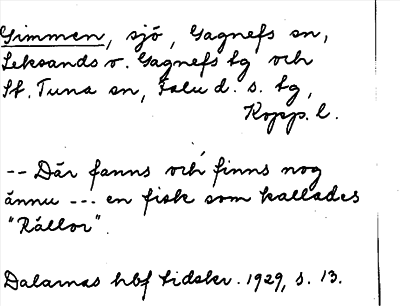 Gimmen, sjö, Gagnefs sn,
Leksands o. Gagnefs tg och
St. Tuna sn, Falu d. s. tg,
Kopp. l.
-- Där fanns och finns nog
ännu --- en fisk som kallades
"Rållor".
Dalarnas hbf tidskr. 1929, s. 13.